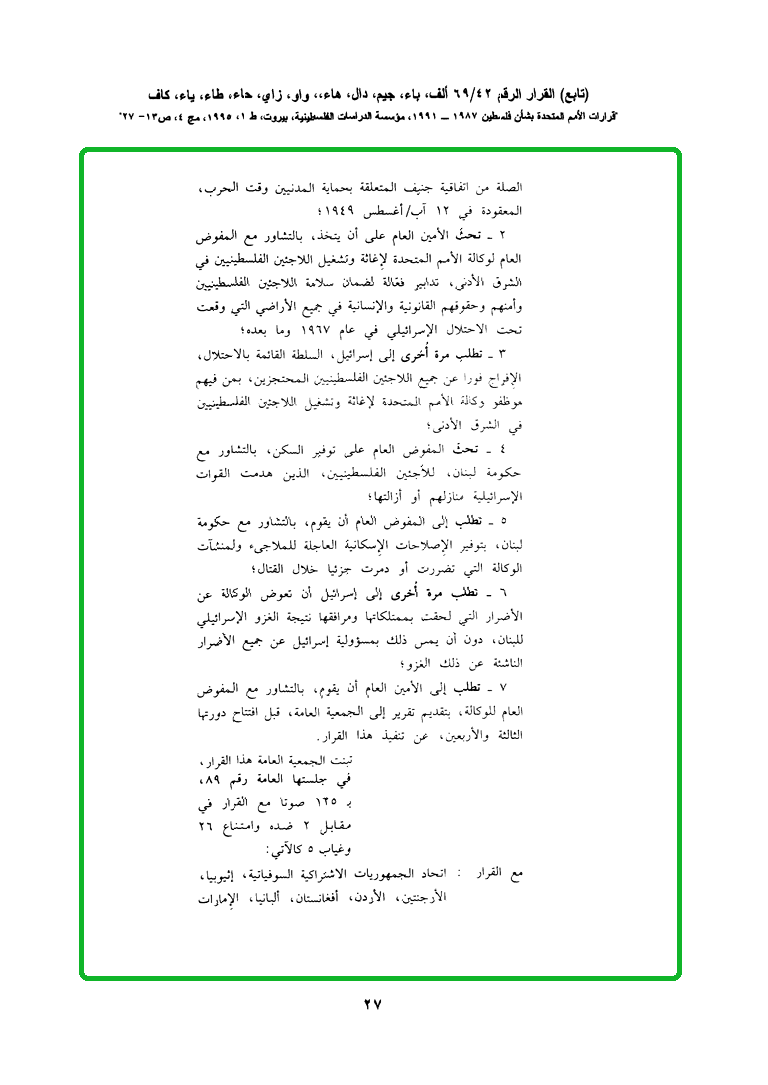 (تابع) القرار الرقم ٦٩/٤٢ ألف، باء، جيم، دال، هاء،، واو، زاي، حاء، طاء، ياء، كاف
"قرارات الأمم المتحدة بشأن فلسطين ١٩٨٧ ــ ١٩٩١، مؤسسة الدراسات الفلسطينية، بيروت، ط ١، ١٩٩٥، مج ٤، ص١٣- ٢٧"
الصلة من اتفاقية جنيف المتعلقة بحماية المدنيين وقت الحرب،
المعقودة في ١٢ آب/أغسطس ١٩٤٩؛
٢ ـ تحثّ الأمين العام على أن يتخذ، بالتشاور مع المفوض
العام لوكالة الأمم المتحدة لإغاثة وتشغيل اللاجئين الفلسطينيين في
الشرق الأدنى، تدابير فعّالة لضمان سلامة اللاجئين الفلسطينيين
وأمنهم وحقوقهم القانونية والإنسانية في جميع الأراضي التي وقعت
تحت الاحتلال الإسرائيلي في عام ١٩٦٧ وما بعده؛
٣ ـ تطلب مرة أُخرى إلى إسرائيل، السلطة القائمة بالاحتلال،
الإفراج فورا عن جميع اللاجئين الفلسطينيين المحتجزين، بمن فيهم
موظفو وكالة الأمم المتحدة لإغاثة وتشغيل اللاجئين الفلسطينيين
في الشرق الأدنى؛
٤ ـ تحثّ المفوض العام على توفير السكن، بالتشاور مع
حكومة لبنان، للاجئين الفلسطينيين، الذين هدمت القوات
الإسرائيلية منازلهم أو أزالتها؛
٥ ـ تطلب إلى المفوض العام أن يقوم، بالتشاور مع حكومة
لبنان، بتوفير الإصلاحات الإسكانية العاجلة للملاجىء ولمنشآت
الوكالة التي تضررت أو دمرت جزئيا خلال القتال؛
٦ ـ تطلب مرة أُخرى إلى إسرائيل أن تعوض الوكالة عن
الأضرار التي لحقت بممتلكاتها ومرافقها نتيجة الغزو الإسرائيلي
للبنان، دون أن يمس ذلك بمسؤولية إسرائيل عن جميع الأضرار
الناشئة عن ذلك الغزو؛
٧ ـ تطلب إلى الأمين العام أن يقوم، بالتشاور مع المفوض
العام للوكالة، بتقديم تقرير إلى الجمعية العامة، قبل افتتاح دورتها
الثالثة والأربعين، عن تنفيذ هذا القرار.
تبنت الجمعية العامة هذا القرار،
في جلستها العامة رقم ٨٩،
بـ ١٢٥ صوتا مع القرار في
مقابل ٢ ضده وامتناع ٢٦
وغياب ٥ كالآتي:
مع القرار : اتحاد الجمهوريات الاشتراكية السوفياتية، إثيوبيا،
الأرجنتين، الأردن، أفغانستان، ألبانيا، الإمارات
٢٧